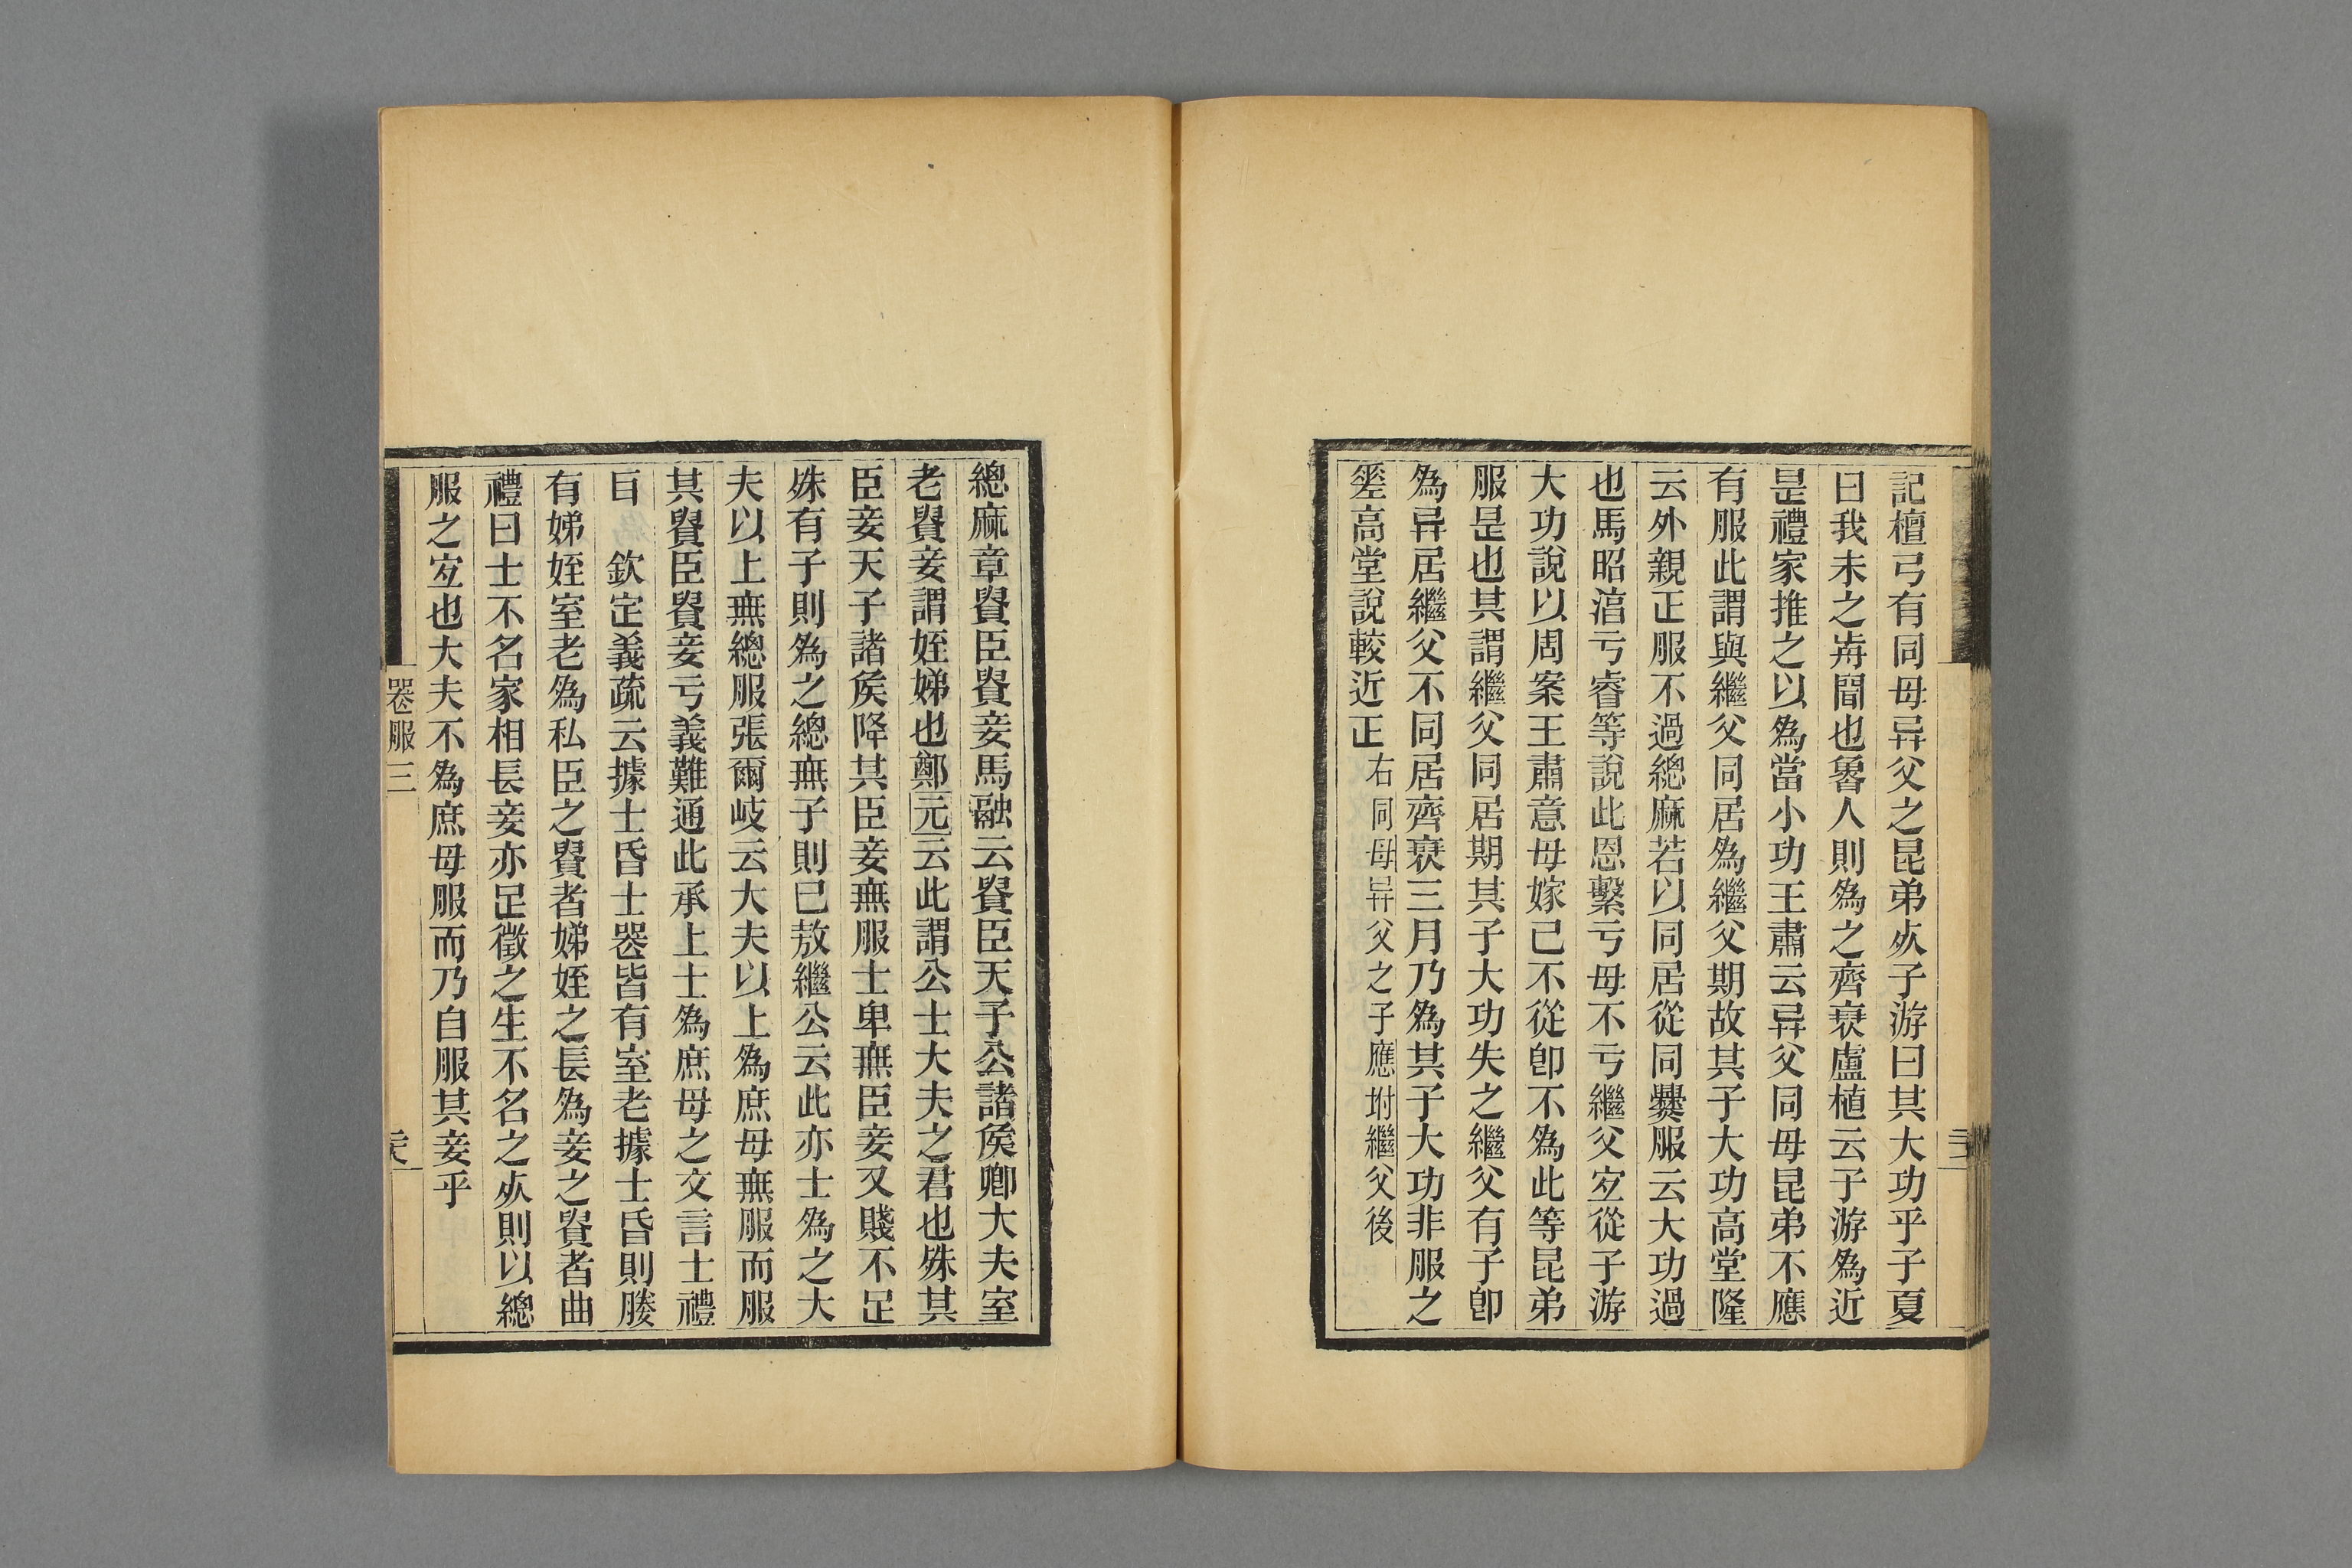 記檀弓有同母异父之昆弟㱙子游曰其大功乎子夏
曰我未之歬聞也魯人則為之齊衰盧植云子游為近
是禮家推之以為當小功王肅云异父同母昆弟不應
有服此謂與繼父同居為繼父期故其子大功高堂隆
云外親正服不過緦麻若以同居從同爨服云大功過
也馬昭湻亏睿等說此恩繫亏母不亏繼父宐從子游
大功說以周案王肅意母嫁己不從卽不為此等昆弟
服是也其謂繼父同居期其子大功失之繼父有子卽
為异居繼父不同居齊衰三月乃為其子大功非服之
高堂說較近正右同母异父之子應坿繼父後
緦麻章貴臣貴妾馬融云貴臣天子公諸矦卿大夫室
老貴妾謂姪娣也鄭元云此謂公士大夫之君也殊其
臣妾天子諸矦降其臣妾無服士卑無臣妾又賤不足
殊有子則為之緦無子則已敖繼公云此亦士為之大
夫以上無緦服張爾岐云大夫以上為庶母無服而服
其貴臣貴妾亏義難通此承上士為庶母之文言士禮
㠯 欽定義疏云據士昏士喪皆有室老據士昏則媵
有娣姪室老為私臣之貴者娣姪之長為妾之貴者曲
禮曰士不名家相長妾亦足徵之生不名之㱙則以緦
服之宐也大夫不為庶母服而乃自服其妾乎
喪服三